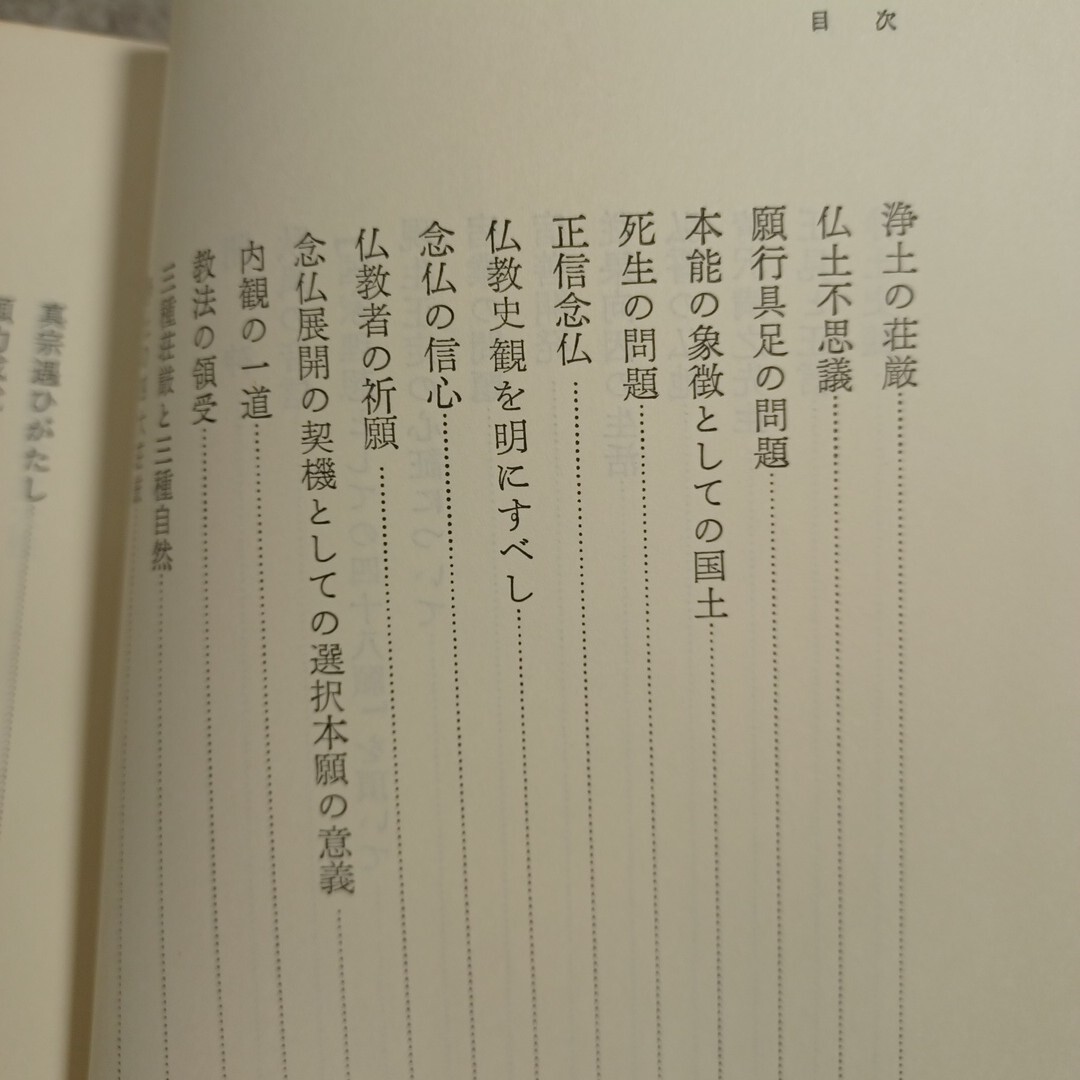 目次
浄土の荘厳
仏土不思議
願行具足の問題
本能の象徴としての国土
死生の問題
正信念仏
仏教史観を明にすべし
念仏の信心
仏教者の祈願
念仏展開の契機としての選択本願の意義
内観の一道
教法の領受
三種荘厳と三種自然
真宗遇ひがたし